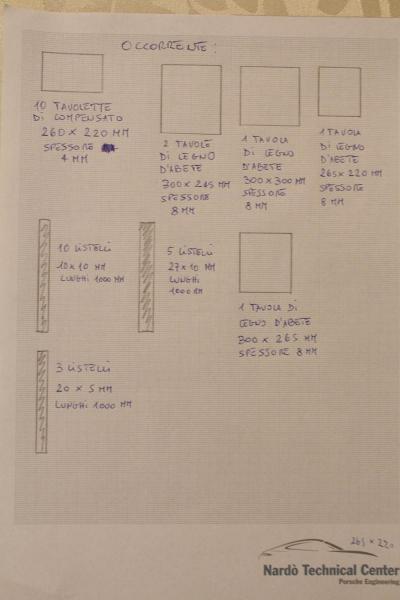 OCCORRENTE:
10 TAVOLETTE
DI COMPENSATO
260 x 220 MM
SPESSORE
4 MM
2 TAVOLE
DI LEGNO
D'ABETE
300 x 245 MM
SPESSORE
8 MM
1 TAVOLA
DI LEGNO
D'ABETE
300 x 300 MM
SPESSORE
8 MM
1 TAVOLA
DI LEGNO
D'ABETE
265 x 220 MM
SPESSORE
8 MM
10 LISTELLI
10 x 10 MM
LUNGHI 1000 MM
5 LISTELLI
27 x 10 MM
LUNGHI
1000 MM
1 TAVOLA DI
LEGNO D'ABETE
300 x 265 MM
SPESSORE 8 MM
3 LISTELLI
20 x 5 MM
LUNGHI 1000 MM
265 x 220
Nardò Technical Center
Porsche Engineering